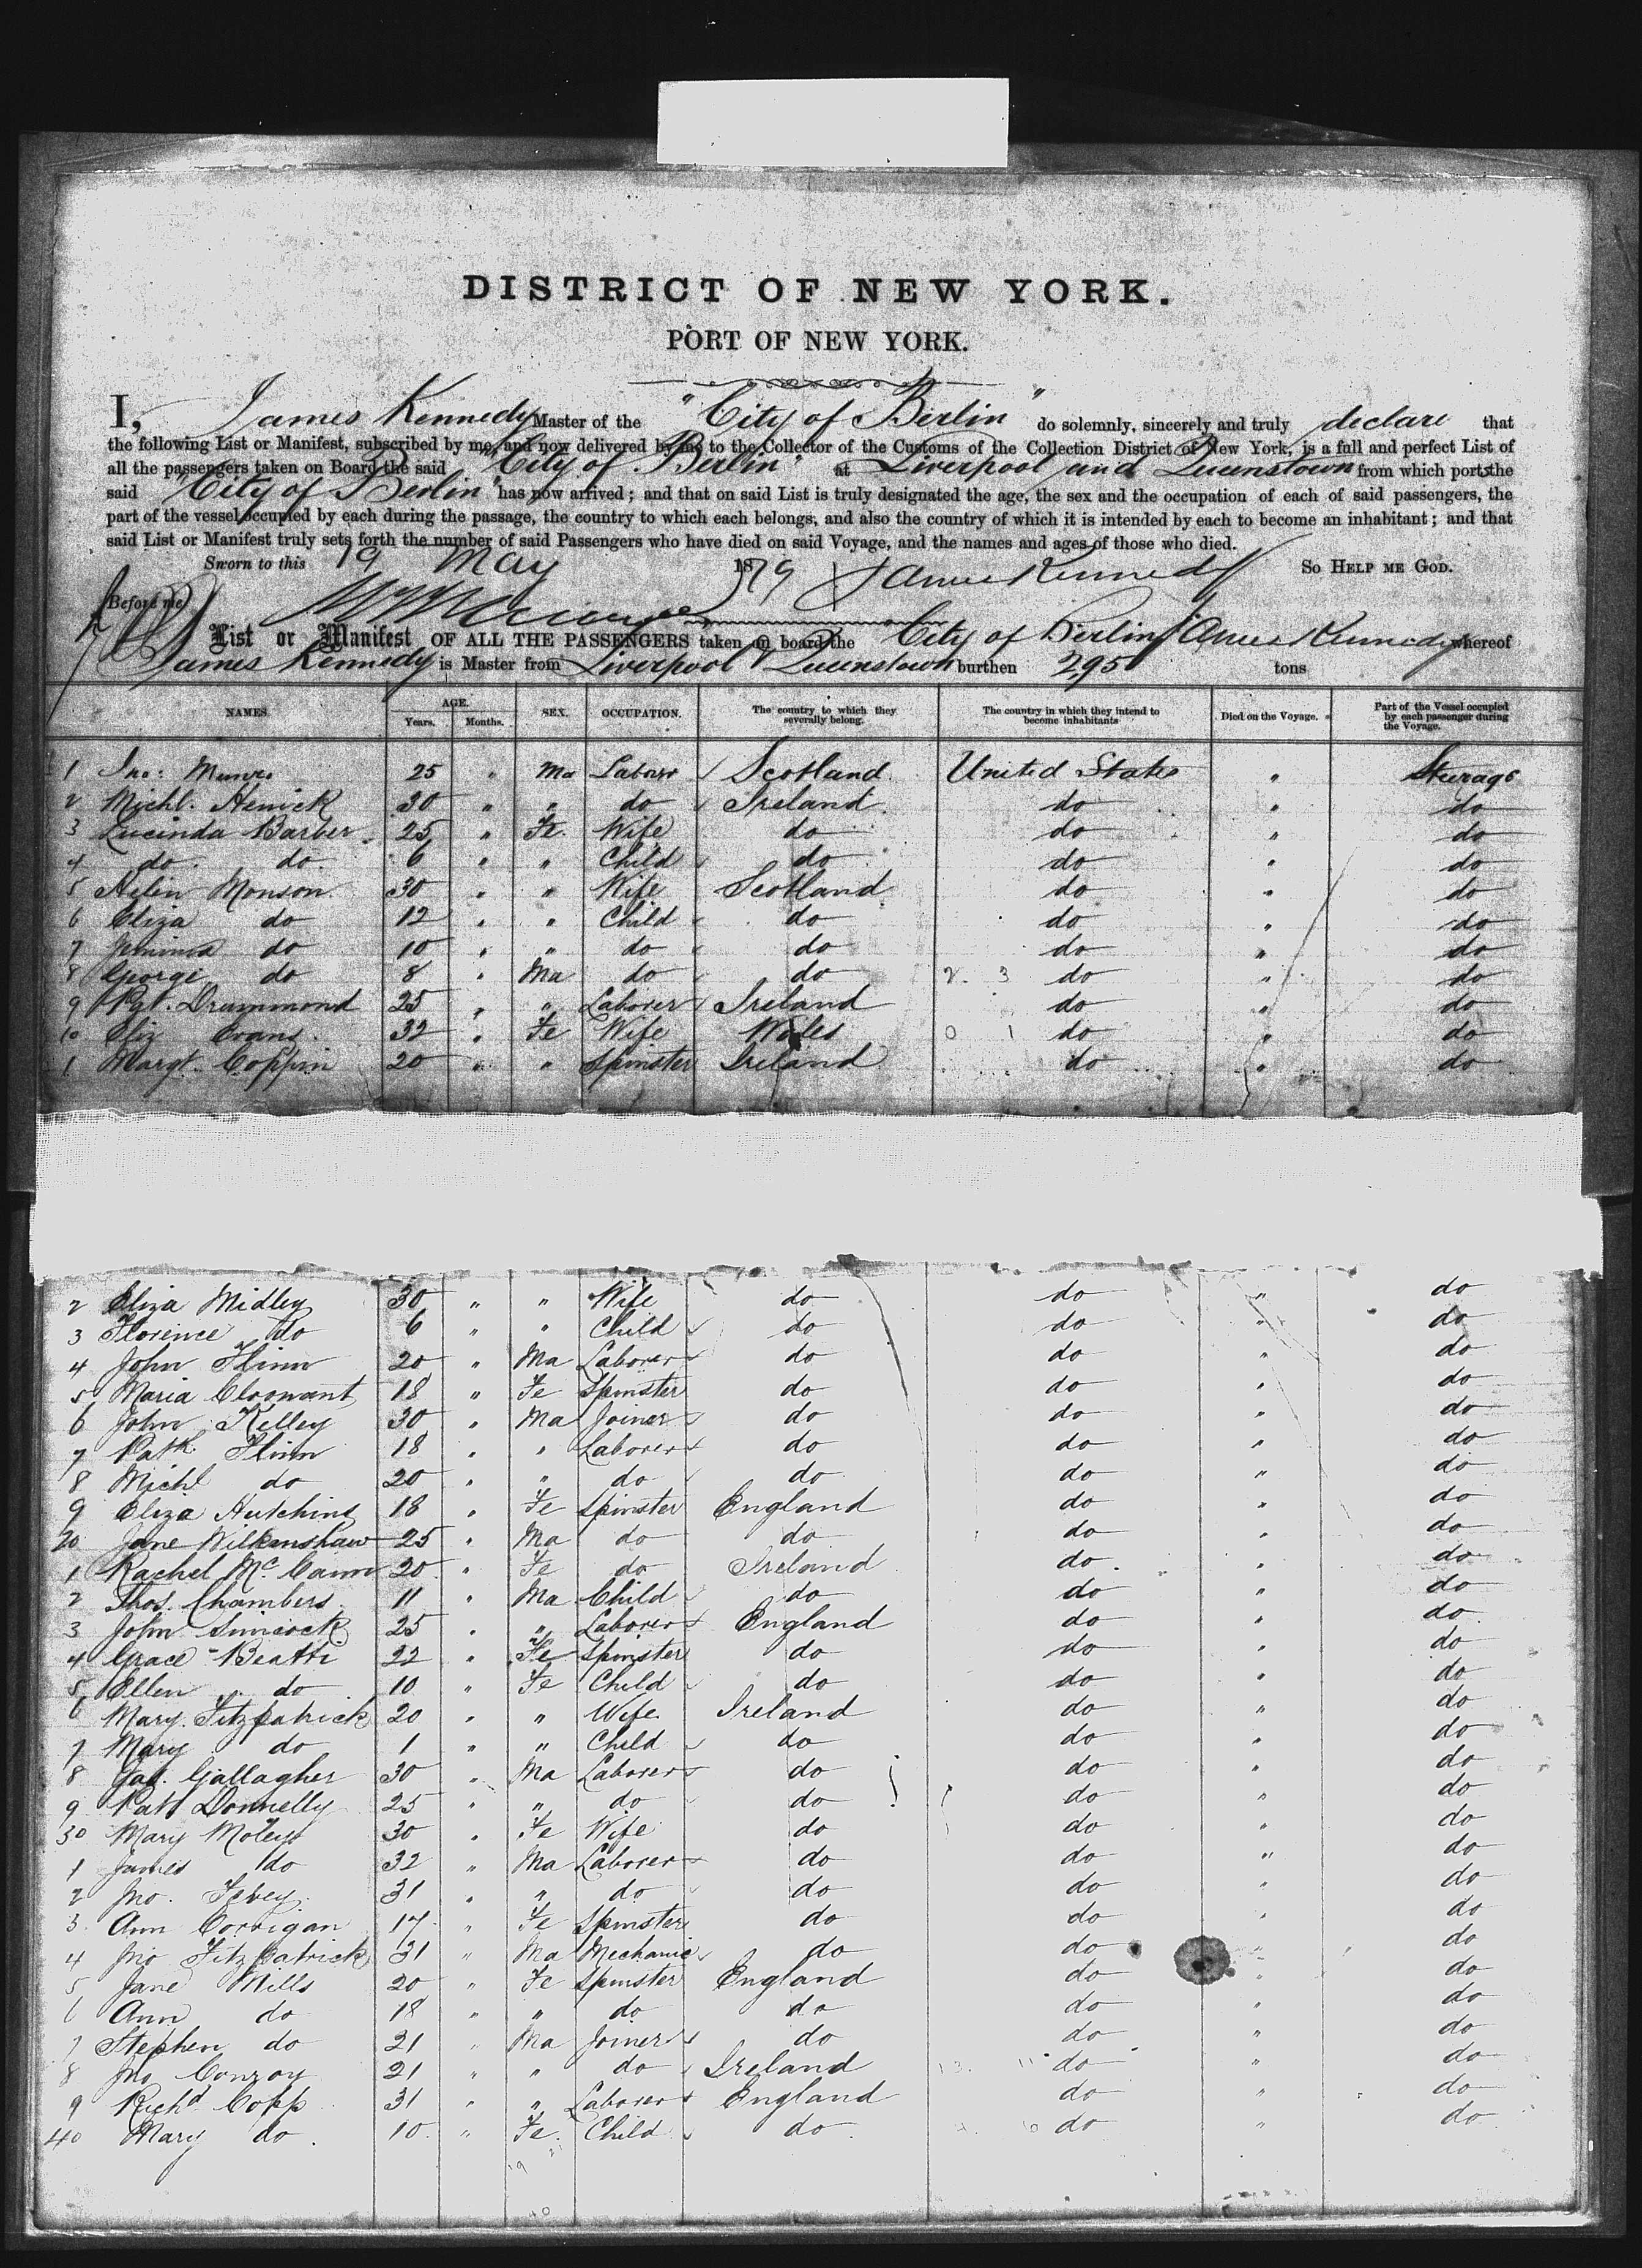 DISTRICT OF NEW YORK.
PORT OF NEW YORK.
I, James Kennedy Master of the "City of Berlin" do solemnly, sincerely and truly declare that
the following List or Manifest, subscribed by me, and now delivered by me to the Collector of the Customs of the Collection District of New York, is a full and perfect List of
all the passengers taken on Board the said "City of Berlin" at Liverpool and Queenstown from which ports the
said "City of Berlin" has now arrived; and that on said List is truly designated the age, the sex and the occupation of each of said passengers, the
part of the vessel occupied by each during the passage, the country to which each belongs, and also the country of which it is intended by each to become an inhabitant; and that
said List or Manifest truly sets forth the number of said Passengers who have died on said Voyage, and the names and ages of those who died.
Sworn to this 19 May 1879 James Kennedy So HELP ME GOD.
Before me
List or Manifest OF ALL THE PASSENGERS taken on board the City of Berlin James Kennedy whereof
James Kennedy is Master from Liverpool Queenstown burthen 295 tons
NAMES. AGE. Years. Months. SEX. OCCUPATION. The country to which they severally belong. The country in which they intend to become inhabitants Died on the Voyage. Part of the Vessel occupied by each passenger during the Voyage.
1 Jno: Munro 25 " Ma Laborer Scotland United States " Steerage
2 Michl. Henick 30 " " do Ireland do " do
3 Lucinda Barber 25 " Fe. Wife do do " do
4 do do 6 " " Child do do " do
5 Helin Monson 30 " " Wife Scotland do " do
6 Eliza do 12 " " Child do do " do
7 Jemima do 10 " " do do do " do
8 George do 8 " Ma do do 2 3 do " do
9 Drummond 25 " " Laborer Ireland do " do
10 Eliz Evans 32 " Fe Wife Wales 0 1 do " do
1 Margt. Coppin 20 " " Spinster Ireland do " do
2 Eliza Midley 30 " " Wife do do " do
3 Florence do 6 " " Child do do " do
4 John Flinn 20 " Ma Laborer do do " do
5 Maria 18 " Fe Spinster do do " do
6 John Kelley 30 " Ma Joiner do do " do
7 Patk Flinn 18 " " Laborer do do " do
8 Michl do 20 " " do do do " do
9 Eliza Hutchins 18 " Fe Spinster England do " do
20 Jane Wilkenshaw 25 " Ma do do do " do
1 Rachel McCann 20 " Fe do Ireland do " do
2 Thos. Chambers 11 " Ma Child do do " do
3 John Simcock 25 " " Laborer England do " do
4 Grace Beatti 22 " Fe Spinster do do " do
5 Ellen do 10 " Fe Child do do " do
6 Mary Fitzpatrick 20 " " Wife Ireland do " do
7 Mary do 1 " " Child do do " do
8 Jas. Gallagher 30 " Ma Laborer do do " do
9 Patt Donnelly 25 " " do do do " do
30 Mary Moleys 30 " Fe Wife do do " do
1 James do 32 " Ma Laborer do do " do
2 Jno. 31 " " do do do " do
3 Ann Corrigan 17 " Fe Spinster do do " do
4 Jno Fitzpatrick 31 " Ma Mechanic do do " do
5 Jane Mills 20 " Fe Spinster England do " do
6 Ann do 18 " " do do do " do
7 Stephen do 21 " Ma Joiner do do " do
8 Jno Conroy 21 " " do Ireland 13. 11 do " do
9 Richd Copp 31 " " Laborer England do " do
40 Mary do 10 " Fe. Child do do " do